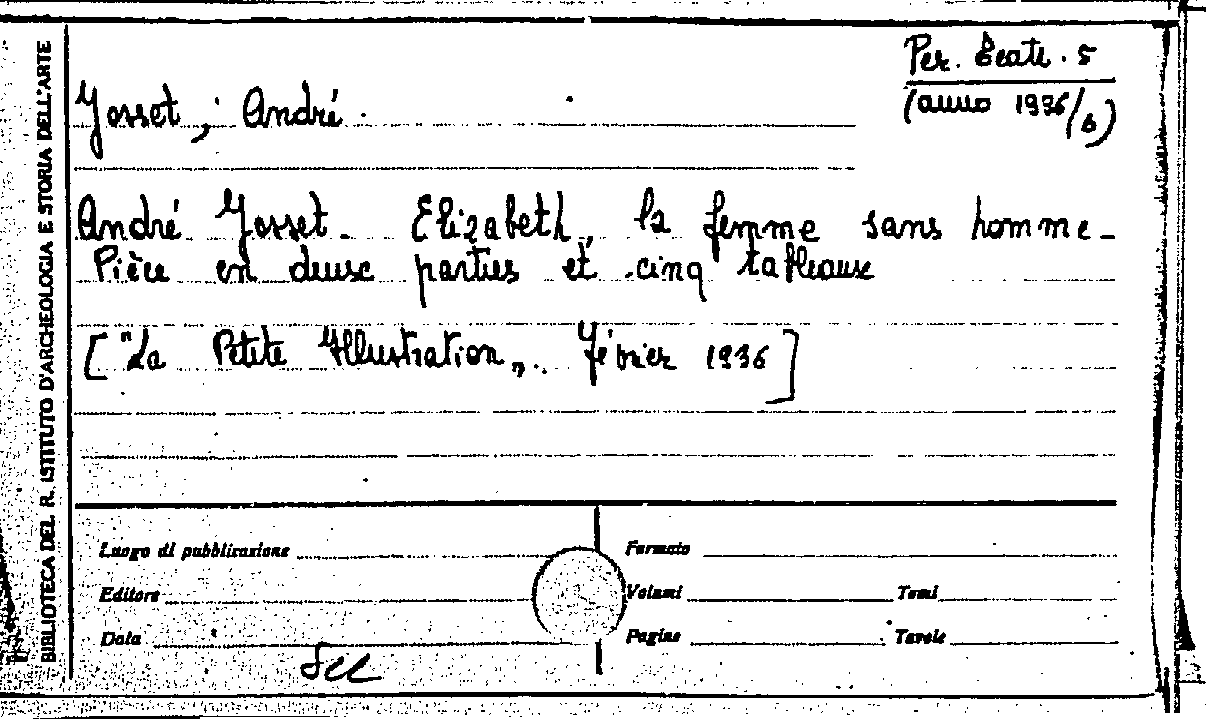 Per. Teatr. 5
(anno 1936/b)
Josset, André.
André Josset. Elizabeth, la femme sans homme.
Pièce en deux parties et cinq tableaux
["La Petite Illustration„. Février 1936]
BIBLIOTECA DEL R. ISTITUTO D'ARCHEOLOGIA E STORIA DELL'ARTE
Luogo di pubblicazione
Formato
Editore
Volumi Tomi
Data
Pagine Tavole